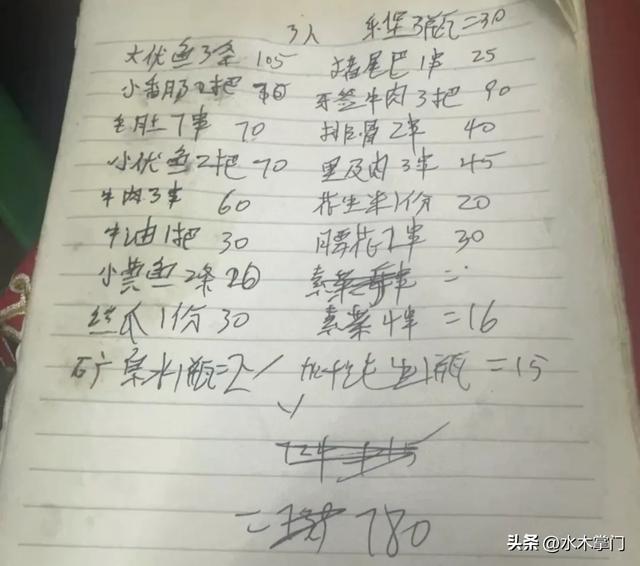 3人 乐堡3瓶=30
大优鱼3条 105 猪尾巴1串 25
小香肠2把 牙签牛肉3把 90
毛肚7串 70 排骨2串 40
小优鱼2把 70 里及肉3串 45
牛肉3串 60 花生米1份 20
牛油1把 30 腰花2串 30
小黄鱼2条 26 素菜 =
丝瓜1份 30 素菜4串 =16
矿泉水1瓶=2 1瓶=15
724
= 780
头条 @水木掌门